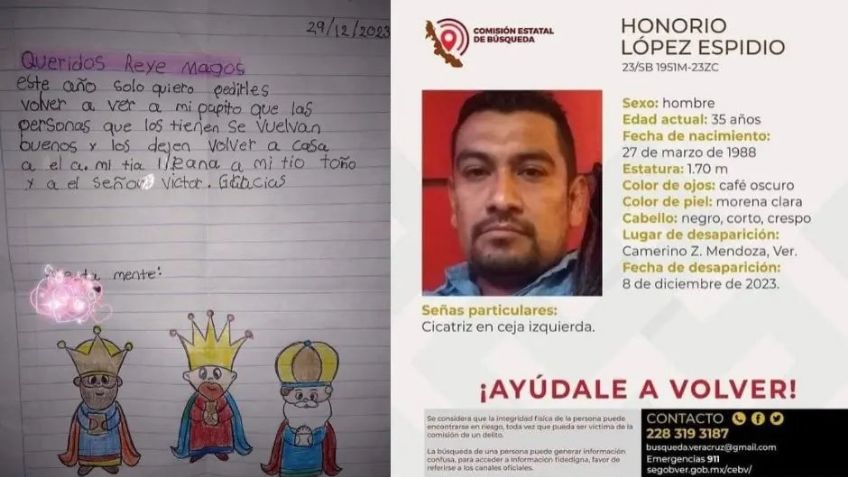 29/12/2023
Queridos Reye Magos
este año solo quiero pedirles
volver a ver a mi papito que las
personas que los tienen se vuelvan
buenos y los dejen volver a casa
a el a. mi tia
a mi tio toño
y a el señor victor. Gracias
mente:
COMISIÓN ESTATAL
DE BÚSQUEDA
HONORIO
LÓPEZ ESPIDIO
23/SB 1951M-23ZC
Sexo: hombre
Edad actual: 35 años
Fecha de nacimiento:
27 de marzo de 1988
Estatura: 1.70 m
Color de ojos: café oscuro
Color de piel: morena clara
Cabello: negro, corto, crespo
Lugar de desaparición:
Camerino Z. Mendoza, Ver.
Fecha de desaparición:
8 de diciembre de 2023.
Señas particulares:
Cicatriz en ceja izquierda.
¡AYÚDALE A VOLVER!
Se considera que la integridad física de la persona puede
encontrarse en riesgo, toda vez que pueda ser víctima de la
comisión de un delito.
La búsqueda de una persona puede generar información
confusa, para acceder a información fidedigna, favor de
referirse a los canales oficiales.
CONTACTO
228 319 3187
busqueda.veracruz@gmail.com
Emergencias 911
segobver.gob.mx/cebv/